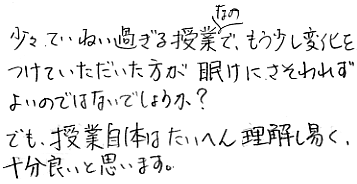 少々ていねい過ぎる授業なので、もう少し変化を
つけていただいた方が眠けにさそわれず
よいのではないでしょうか？
でも、授業自体はたいへん理解し易く、
十分良いと思います。